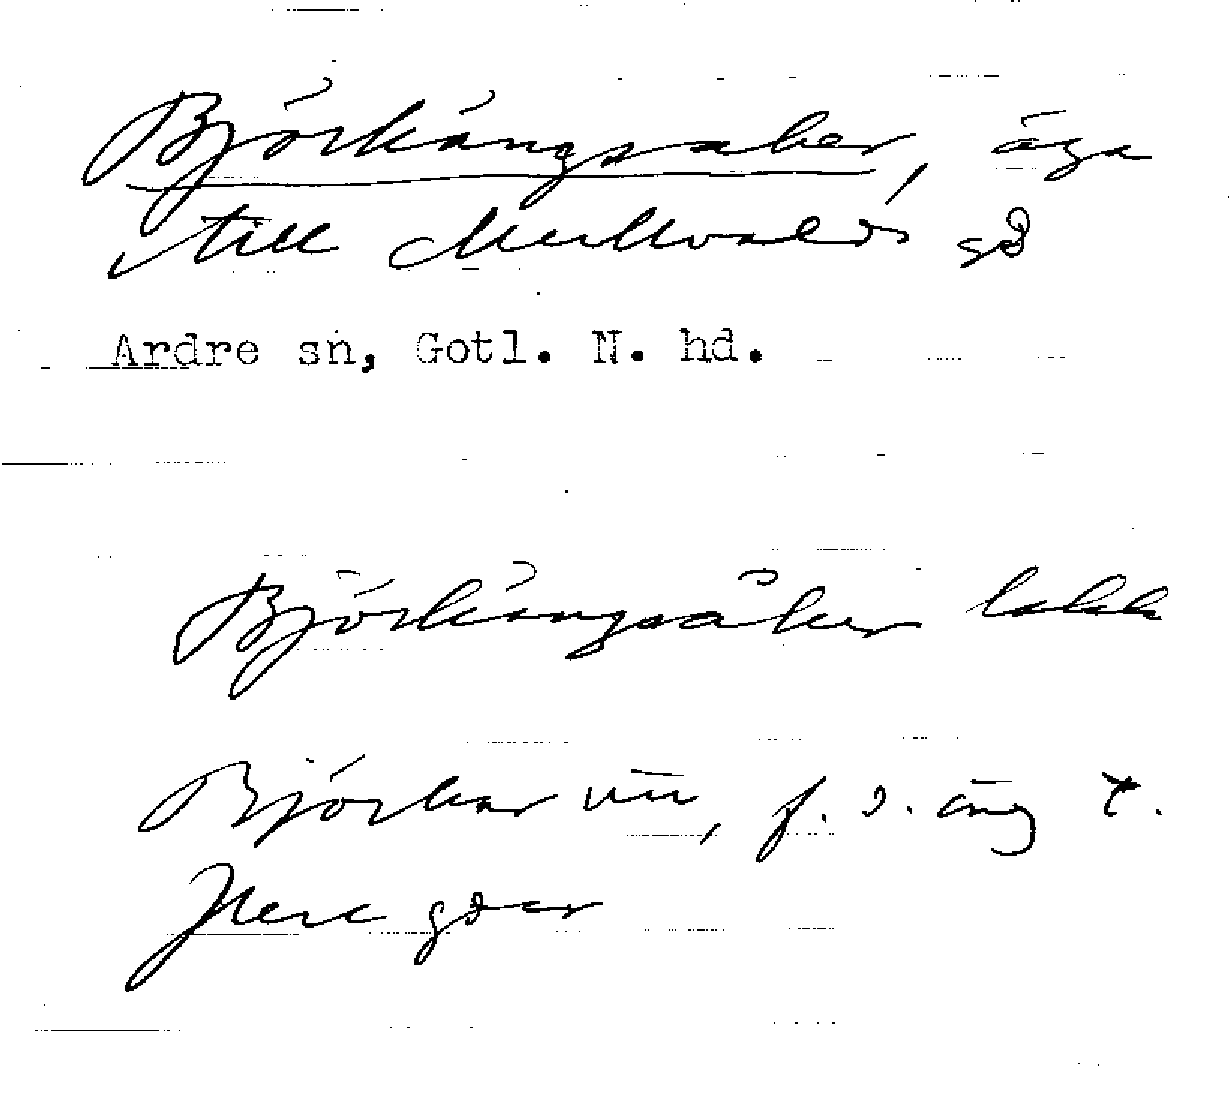 Björkängsaker, äga
till Mullvalds gd
Ardre sn, Gotl. N. hd.
Björkängsåker
Björkar f. d. äng t.
flere gdar